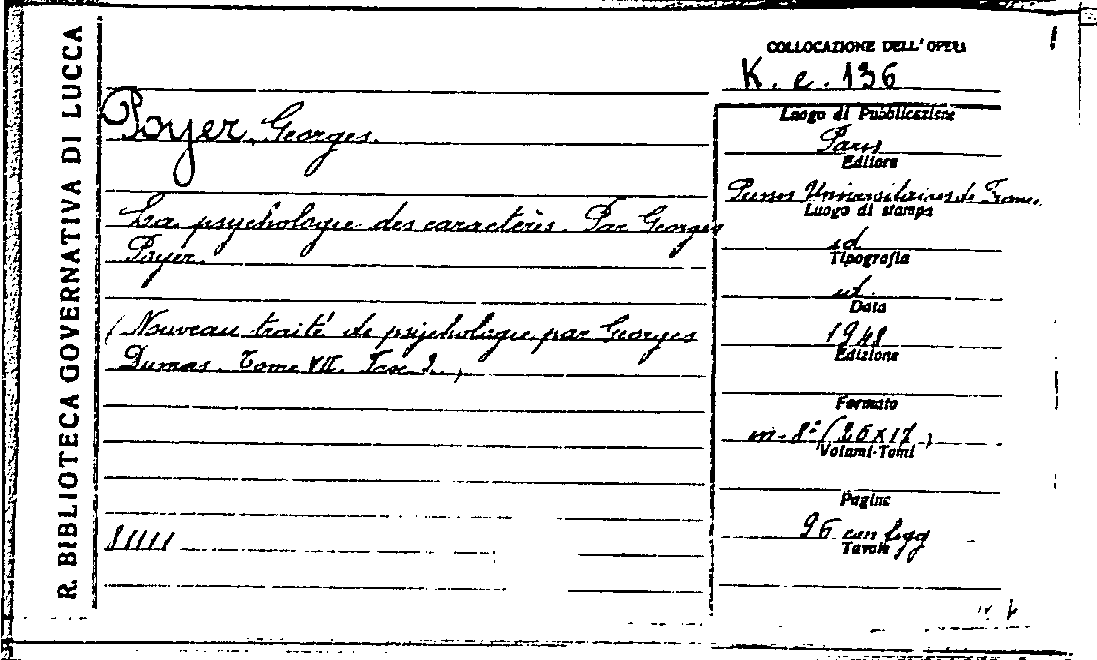 R. BIBLIOTECA GOVERNATIVA DI LUCCA
Poyer Georges.
La psychologie des caractères. Par Georges
Poyer.
(Nouveau traité de psychologie par Georges
Dumas. Tome VII. Fasc 2.)
11111
COLLOCAZIONE DELL' OPERA
K. e. 136
Luogo di Pubblicazione
Paris
Editore
Presses Universitaires de France.
Luogo di stampa
id
Tipografia
id.
Data
1948
Edizione
Formato
in-8° (25x17)
Volumi-Tomi
Pagine
96 con figg
Tavole